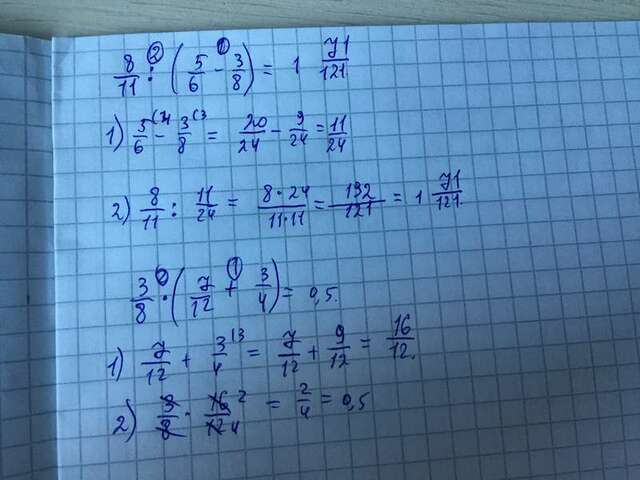 8/11 : (5/6 - 3/8) = 1 71/121
1) 5/6 (4 - 3/8 (3 = 20/24 - 9/24 = 11/24
2) 8/11 : 11/24 = 8·24/11·11 = 192/121 = 1 71/121.
3/8 · (7/12 + 3/4) = 0,5.
1) 7/12 + 3/4 (3 = 7/12 + 9/12 = 16/12.
2) 3/8 · 16/12 2 4 = 2/4 = 0,5